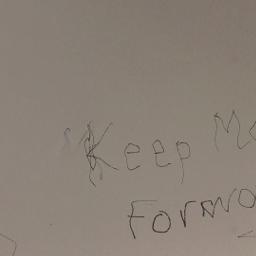 Keep Mo
Forwa